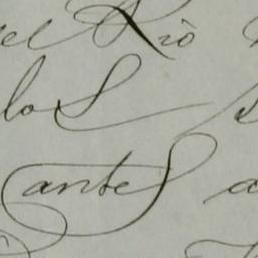 el Rio
los
antes a